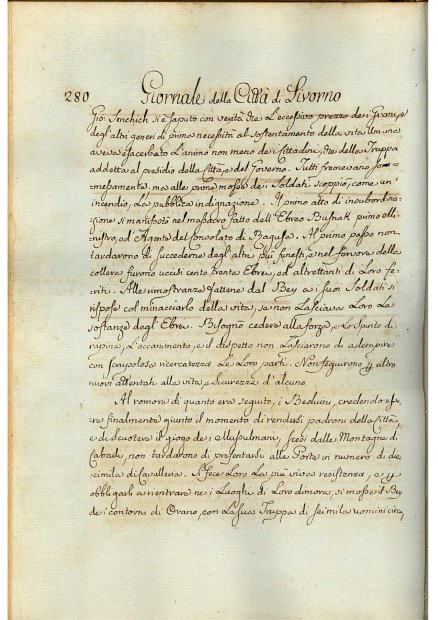 280 Giornale della Città di Livorno
Gio: Senchich si è saputo con verità che l'eccessivo prezzo dei Grani, e
degl'altri generi di prima necessità al sostentamento della vita umana
aveva esacerbato l'animo non meno dei Cittadini, che della Truppa
addetta al presidio della Città, e del Governo. Tutti fremevano som-
messamente, ma alle prime mosse dei Soldati scoppiò, come un'
incendio, la pubblica indignazione. Il primo atto di insubordina-
zione si manifestò nel massacro fatto dell'Ebreo Busnak primo Mi-
nistro, ed Agente del Consolato di Ragusa. Al primo passo non
tardarono di succederne degl'altri più funesti, e nel fervore della
collera furono uccisi cento tronta Ebrei, ed altrettanti di Loro fe-
riti. Alle rimostranze fattene dal Bey a i suoi Soldati si
rispose col minacciarlo della vita, se non lasciava Loro le
sostanze degl'Ebrei. Bisognò cedere alla forza, e lo spirito di
rapina, l'accanimento, e il dispetto non lasciarono di adempire
con scrupolosa ricercatezza le Loro parti. Non seguirono altro
nuovi attentati alla vita, e sicurezza d'alcuno.
Al romore di quanto era seguito, i Beduini, credendo es-
sere finalmente giunto il momento di rendersi padroni della Città,
e di scuotere il giogo dei Musulmani, scesi dalle Montagne di
Cabail, non tardarono di presentarsi alle Porte in numero di die-
cimila di Cavalleria. Si fece Loro la più viva resistenza, e
obbligarli a rientrare ne i Luoghi di Loro dimora, si mosse il Bey
de i contorni di Orano, con la sua Truppa di seimila uomini circa,